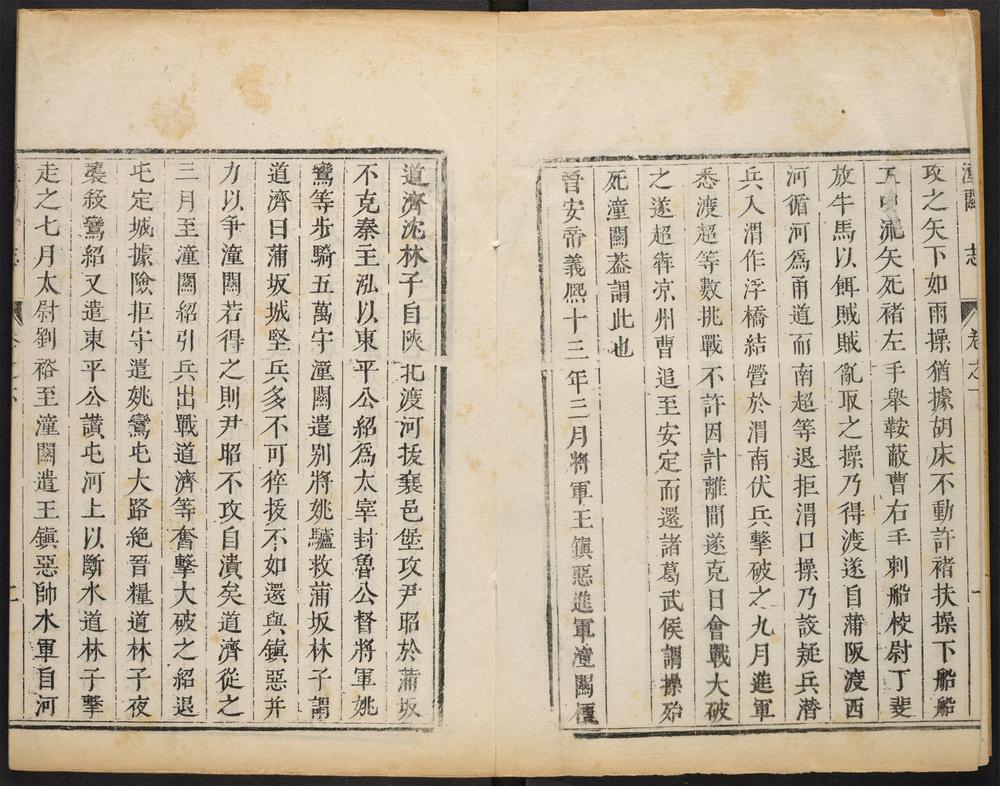 潼關 志 卷之
攻之矢下如雨操猶據胡床不動許褚扶操下船船
工中流矢死褚左手舉鞍蔽曹右手刺船校尉丁斐
放牛馬以餌賊賊亂取之操乃得渡遂自蒲阪渡西
河循河爲甬道而南超等退拒渭口操乃設疑兵潛
兵入渭作浮橋結營於渭南伏兵擊破之九月進軍
悉渡超等數挑戰不許因計離間遂克日會戰大破
之遂超犇凉州曹追至安定而還諸葛武侯謂操殆
死潼關葢謂此也
晉安帝義熙十三年三月將軍王鎮惡進軍潼關檀
道濟沈林子自陝北渡河拔襄邑堡攻尹昭於蒲坂
不克秦主泓以東平公紹爲太宰封魯公督將軍姚
鸞等步騎五萬守潼關遣别將姚驢救浦坂林子謂
道濟曰蒲坂城堅兵多不可猝拔不如還與鎮惡并
力以爭潼關若得之則尹昭不攻自潰矣道濟從之
三月至潼關紹引兵出戰道濟等奮擊大破之紹退
屯定城據險拒守遣姚鸞屯大路絶晉糧道林子夜
襲殺鸞紹又遣東平公讚屯河上以斷水道林子擊
走之七月太尉劉裕至潼關遣王鎮惡帥水軍自河